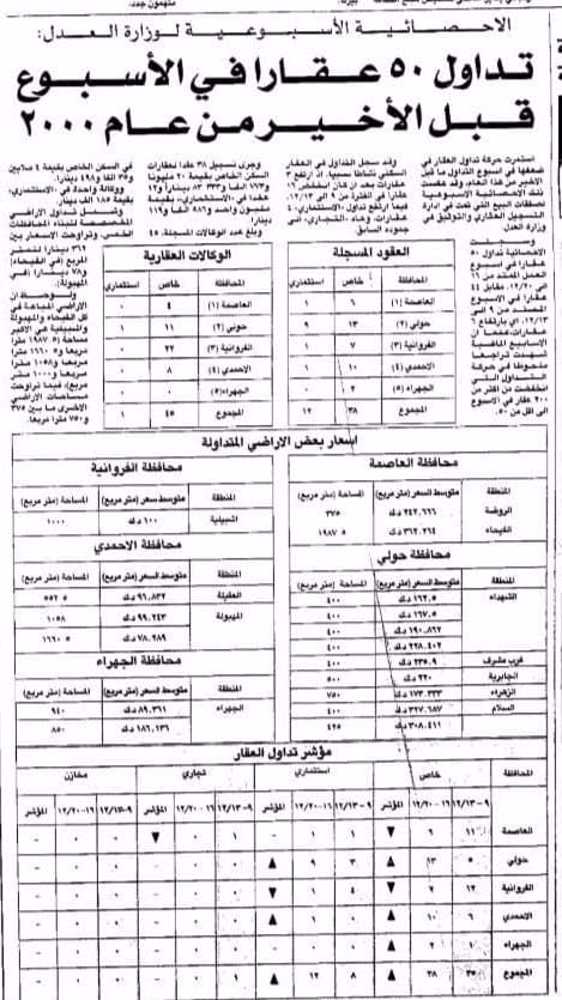 الاحصائية الأسبوعية لوزارة العدل:
تداول ٥٠ عقارا في الأسبوع
قبل الأخير من عام ٢٠٠٠
استمرت حركة تداول العقار في
ضعفها في اسبوع ما قبل
الاخير من هذا العام، وقد عكست
تلك الاحصائية الاسبوعية
لصفقات البيع التي تمت في ادارة
التسجيل العقاري والتوثيق في
وزارة العدل.
وسجلت
الاحصائية تداول ٥٠
عقارا في اسبوع
العمل الممتد من ١٦
الى ١٢/٢٠، مقابل ٤٤
عقارا في الاسبوع
الممتد من ٩ الى
١٢/١٣، اي بارتفاع ٦
عقارات، علما ان
الاسابيع الماضية
شهدت تراجعا
ملحوظا في حركة
التداول التي
انخفضت من اكثر من
٢٠٠ عقار في الاسبوع
الى اقل من ٥٠.
وقد سجل التداول في العقار
السكني نشاطا نسبيا، اذ ارتفع ٣
عقارات بعد ان كان انخفض ١٦
عقارا في الفترة من ٩ الى ١٢/١٣،
فيما ارتفع تداول «الاستثماري» ٤
عقارات، وعاد «التجاري» الى
جموده السابق.
وجرى تسجيل ٣٨ عقدا لعقارات
السكن الخاص بقيمة ٢٠ مليونا
و١٧٣ الفا و٣٣٣ ,٨٣ دينارا و١٢
عقدا في «الاستثماري» بقيمة
مليون واحد و٩٨٦ الفا و١١٩
دينارا.
وبلغ عدد الوكالات المسجلة، ٤٥
في السكن الخاص بقيمة ٤ ملايين
و٣٥ الفا و٤٩٨ دينارا.
ووكالة واحدة في «الاستثماري»
بقيمة ١٨٥ الف دينار.
وشمل تداول الاراضي
المخصصة للبناء المحافظات
الخمس، وتراوحت الاسعار بين
٣٦٢ دينارا للمتر
المربع (في الفيحاء)
و٧٨ دينارا (في
المهبولة).
ويلاحظ ان
الاراضي المباعة في
كل الفيحاء والمهبولة
والشبيلية هي الاكبر
مساحة (١٩٨٧.٥ مترا
مربعا و١٦٦٠.٥ مترا
مربعا و١٠٥٨ مترا
مربعا و١٠٠٠ متر
مربع)، فيما تراوحت
مساحات الاراضي
الاخرى ما بين ٣٧٥
و٧٥٠ مترا مربعا.
العقود المسجلة
المحافظة خاص استثماري
العاصمة (١) ٦ ١
حولي (٢) ١٣ ٩
الفروانية (٣) ٧ ١
الاحمدي (٤) ١٠ ١
الجهراء (٥) ٢ ٠
المجموع ٣٨ ١٢
الوكالات العقارية
المحافظة خاص استثماري
العاصمة (١) ٤ ٠
حولي (٢) ١١ ١
الفروانية (٣) ٢٢ ٠
الاحمدي (٤) ٨ ٠
الجهراء (٥) ٠ ٠
المجموع ٤٥ ١
اسعار بعض الاراضي المتداولة
محافظة العاصمة
المنطقة متوسط السعر (متر مربع) المساحة (متر مربع)
الروضة ٢٤٢,٦٦٦ د.ك ٣٧٥
الفيحاء ٣٦٢,٢٦٤ د.ك ١٩٨٧.٥
محافظة حولي
المنطقة متوسط السعر (متر مربع) المساحة (متر مربع)
الشهداء ١٦٢,٥ د.ك ٤٠٠
١٦٧,٥ د.ك ٤٠٠
١٩٠,٨٦٢ د.ك ٤٠٠
٢٢٨,٤٠٢ د.ك ٤٠٠
غرب مشرف ٢٣٥,٩ د.ك ٤٠٠
الجابرية ٢٢٠ د.ك ٥٠٠
الزهراء ١٧٣,٣٣٣ د.ك ٧٥٠
السلام ٣٢٧,٦٨٧ د.ك ٤٠٠
٣٠٨,٤١١ د.ك ٤٢٥
محافظة الفروانية
المنطقة متوسط السعر (متر مربع) المساحة (متر مربع)
الشبيلية ١٠٠ د.ك ١٠٠٠
محافظة الاحمدي
المنطقة متوسط السعر (متر مربع) المساحة (متر مربع)
العقيلة ٩٦,٨٣٢ د.ك ٥٥٢.٥
المهبولة ٩٩,٢٤٣ د.ك ١٠٥٨
٧٨,٢٨٩ د.ك ١٦٦٠.٥
محافظة الجهراء
المنطقة متوسط السعر (متر مربع) المساحة (متر مربع)
الجهراء ٨٩,٣٦١ د.ك ٩٤٠
١٨٦,١٣٦ د.ك ٨٥٠
مؤشر تداول العقار
المحافظة خاص استثماري تجاري مخازن
٩-١٢/١٣ ١٦-١٢/٢٠ المؤشر ٩-١٢/١٣ ١٦-١٢/٢٠ المؤشر ٩-١٢/١٣ ١٦-١٢/٢٠ المؤشر ٩-١٢/١٣ ١٦-١٢/٢٠ المؤشر
العاصمة ١١ ٦ ▼ ١ ١ - ١ ٠ ▼ ٠ ٠ -
حولي ٥ ١٣ ▲ ٣ ٩ ▲ ٠ ٠ - ٠ ٠ -
الفروانية ١٢ ٧ ▼ ٤ ١ ▼ ٠ ٠ - ٠ ٠ -
الاحمدي ٦ ١٠ ▲ ٠ ١ ▲ ٠ ٠ - ٠ ٠ -
الجهراء ١ ٢ ▲ ٠ ٠ - ٠ ٠ - ٠ ٠ -
المجموع ٣٥ ٣٨ ▲ ٨ ١٢ ▲ ١ ٠ - ٠ ٠ -